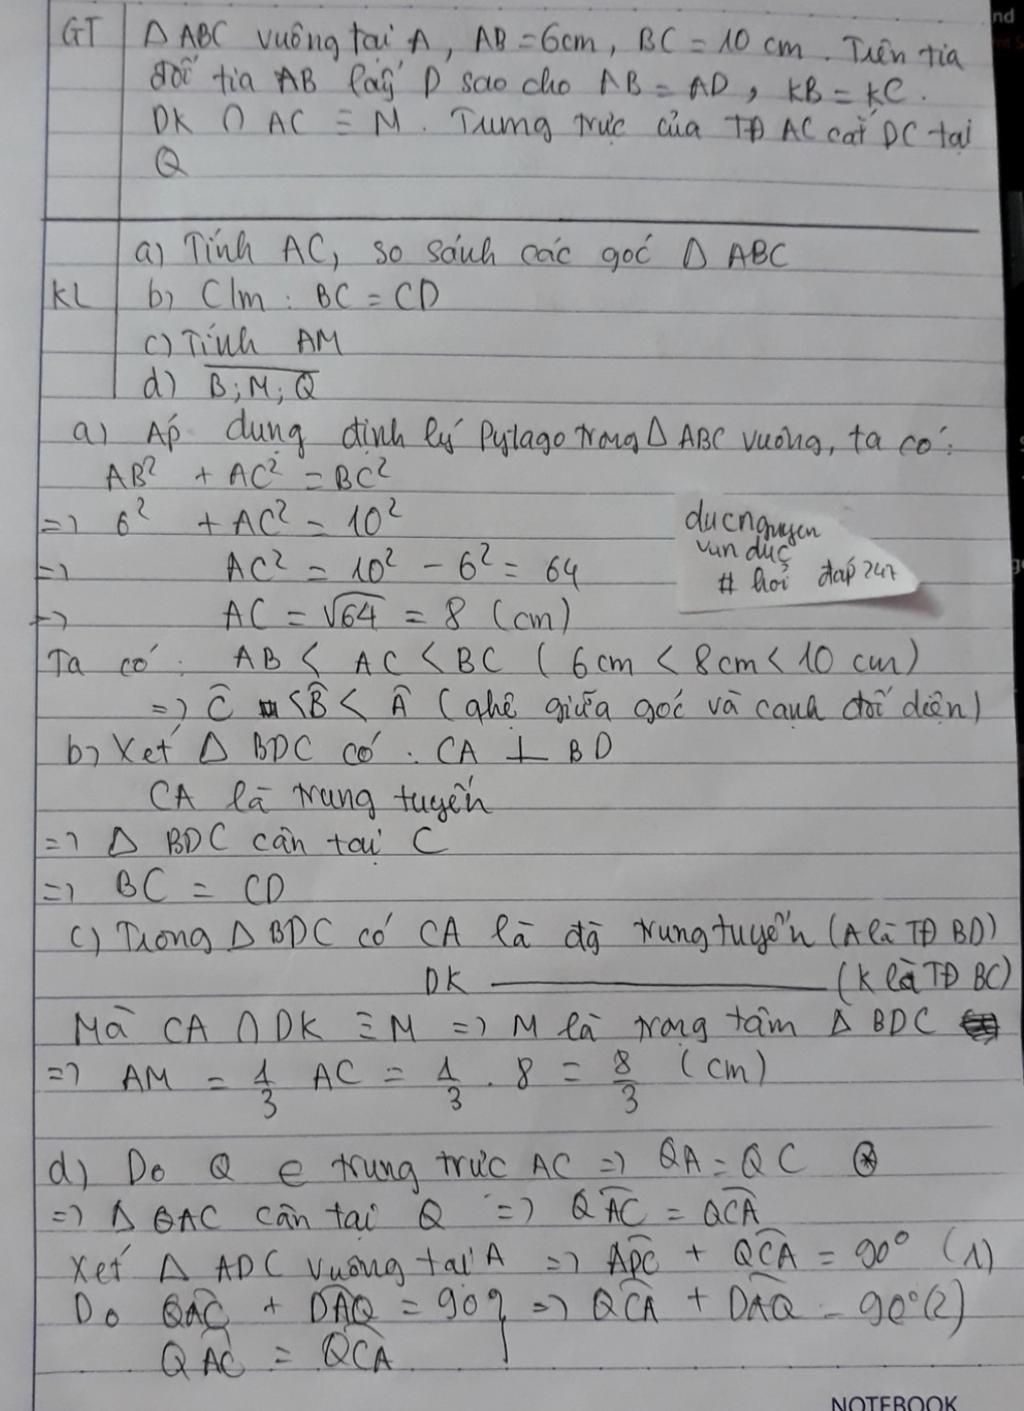 GT Δ ABC vuông tại A, AB = 6cm, BC = 10 cm. Trên tia
đối tia AB lấy D sao cho AB = AD, KB = KC.
DK ∩ AC ≡ M. Trung trực của TĐ AC cắt DC tại
Q
a) Tính AC, so sánh các góc Δ ABC
KL b) C/m : BC = CD
c) Tính AM
d) \overline{B; M; Q}
a) Áp dụng định lý Pytago trong Δ ABC vuông, ta có:
AB² + AC² = BC²
=> 6² + AC² = 10²
=> AC² = 10² - 6² = 64
=> AC = √64 = 8 (cm)
ducnguyen
van duc
# hỏi đáp 247
Ta có: AB < AC < BC (6cm < 8cm < 10 cm)
=> Ĉ < B̂ < Â (qhệ giữa góc và cạnh đối diện)
b) Xét Δ BDC có : CA ⊥ BD
CA là trung tuyến
=> Δ BDC cân tại C
=> BC = CD
c) Trong Δ BDC có CA là đg trung tuyến (A là TĐ BD)
DK ———— (K là TĐ BC)
Mà CA ∩ DK ≡ M => M là trọng tâm Δ BDC
=> AM = 1/3 AC = 1/3 . 8 = 8/3 (cm)
d) Do Q ∈ trung trực AC => QA = QC (*)
=> Δ QAC cân tại Q => \widehat{QAC} = \widehat{QCA}
Xét Δ ADC vuông tại A => \widehat{ADC} + \widehat{QCA} = 90° (1)
Do \widehat{QAC} + \widehat{DAQ} = 90° } => \widehat{QCA} + \widehat{DAQ} = 90° (2)
\widehat{QAC} = \widehat{QCA}
NOTEBOOK